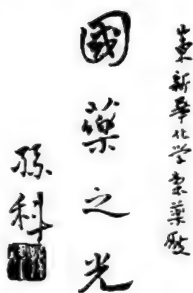 山東新華化学製藥廠
國藥之光
孫科